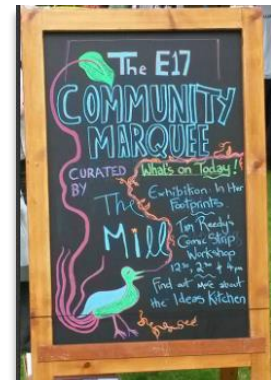 The E17
COMMUNITY
MARQUEE
CURATED
BY
The
Mill
What's on Today!
Exhibition: In Her
Footprints.
Tim Reedy's
Comic Strip
Workshop
12
Find out more about
the Ideas Kitchen